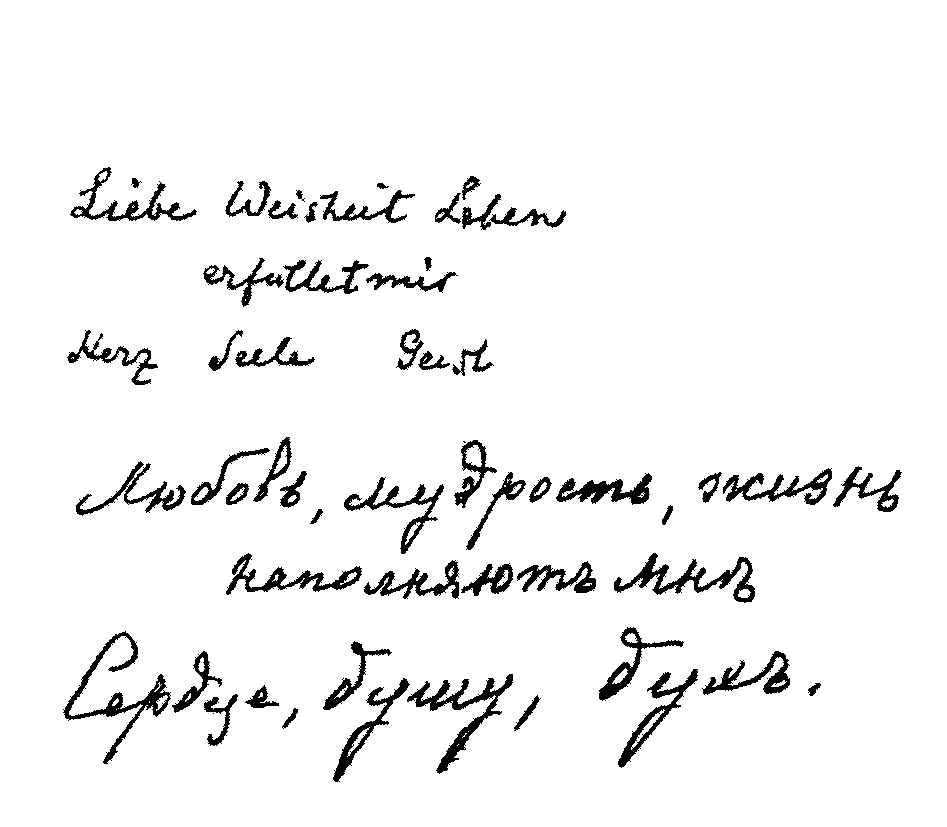 Liebe Weisheit Leben
erfüllet mir
Herz Seele Geist
Любовь, мудрость, жизнь
наполняютъ мнѣ
Сердце, душу, духъ.